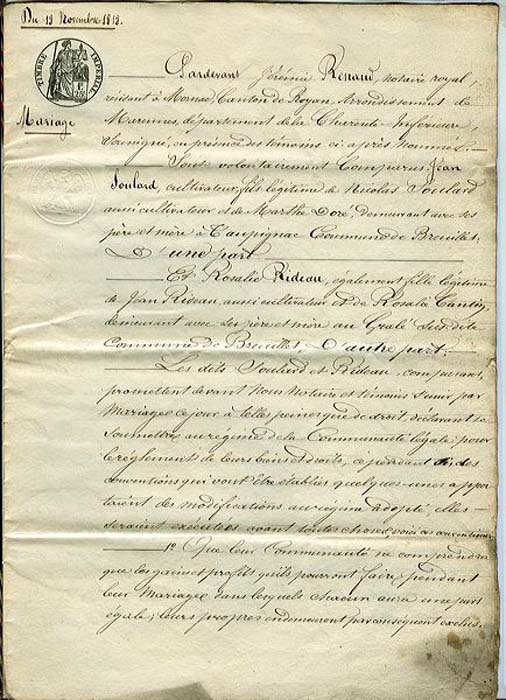 Du 19 Novembre 1813.
TIMBRE IMPERIAL
Mariage
Pardevant Jérémie Renaud, notaire royal,
résidant à Mornac, Canton de Royan, Arrondissement de
Marennes, département de la Charente-Inférieure,
Soussigné, en présence des témoins ci-après nommés.
Sont volontairement Comparus Jean
Soulard, cultivateur, fils légitime de Nicolas Soulard
aussi cultivateur et de Marthe Doré, demeurant avec ses
père et mère à Taupignac Commune de Breuillet,
D'une part
Et Rosalie Rideau, également fille légitime
de Jean Rideau, aussi cultivateur et de Rosalie
demeurant avec ses père et mère au susdite
Commune de Breuillet, D'autre part.
Les dits Soulard et Rideau comparant,
promettent devant Nous Notaire et témoins s'unir par
Mariage ce jour à telles peines que de droit, déclarant se
soumettre au régime de la Communauté légale pour
le règlement de leurs biens et droits, cependant si des
conventions qui vont être établies quelques-unes appor
taient des modifications au régime adopté, elles
seraient exécutées avant toutes choses, voici ces conventions
1º Que leur Communauté ne comprendra
que les gains et profits qu'ils pourront faire, pendant
leur Mariage, dans lesquels chacun aura une part
égale; leurs propres en demeurent par conséquent exclus.